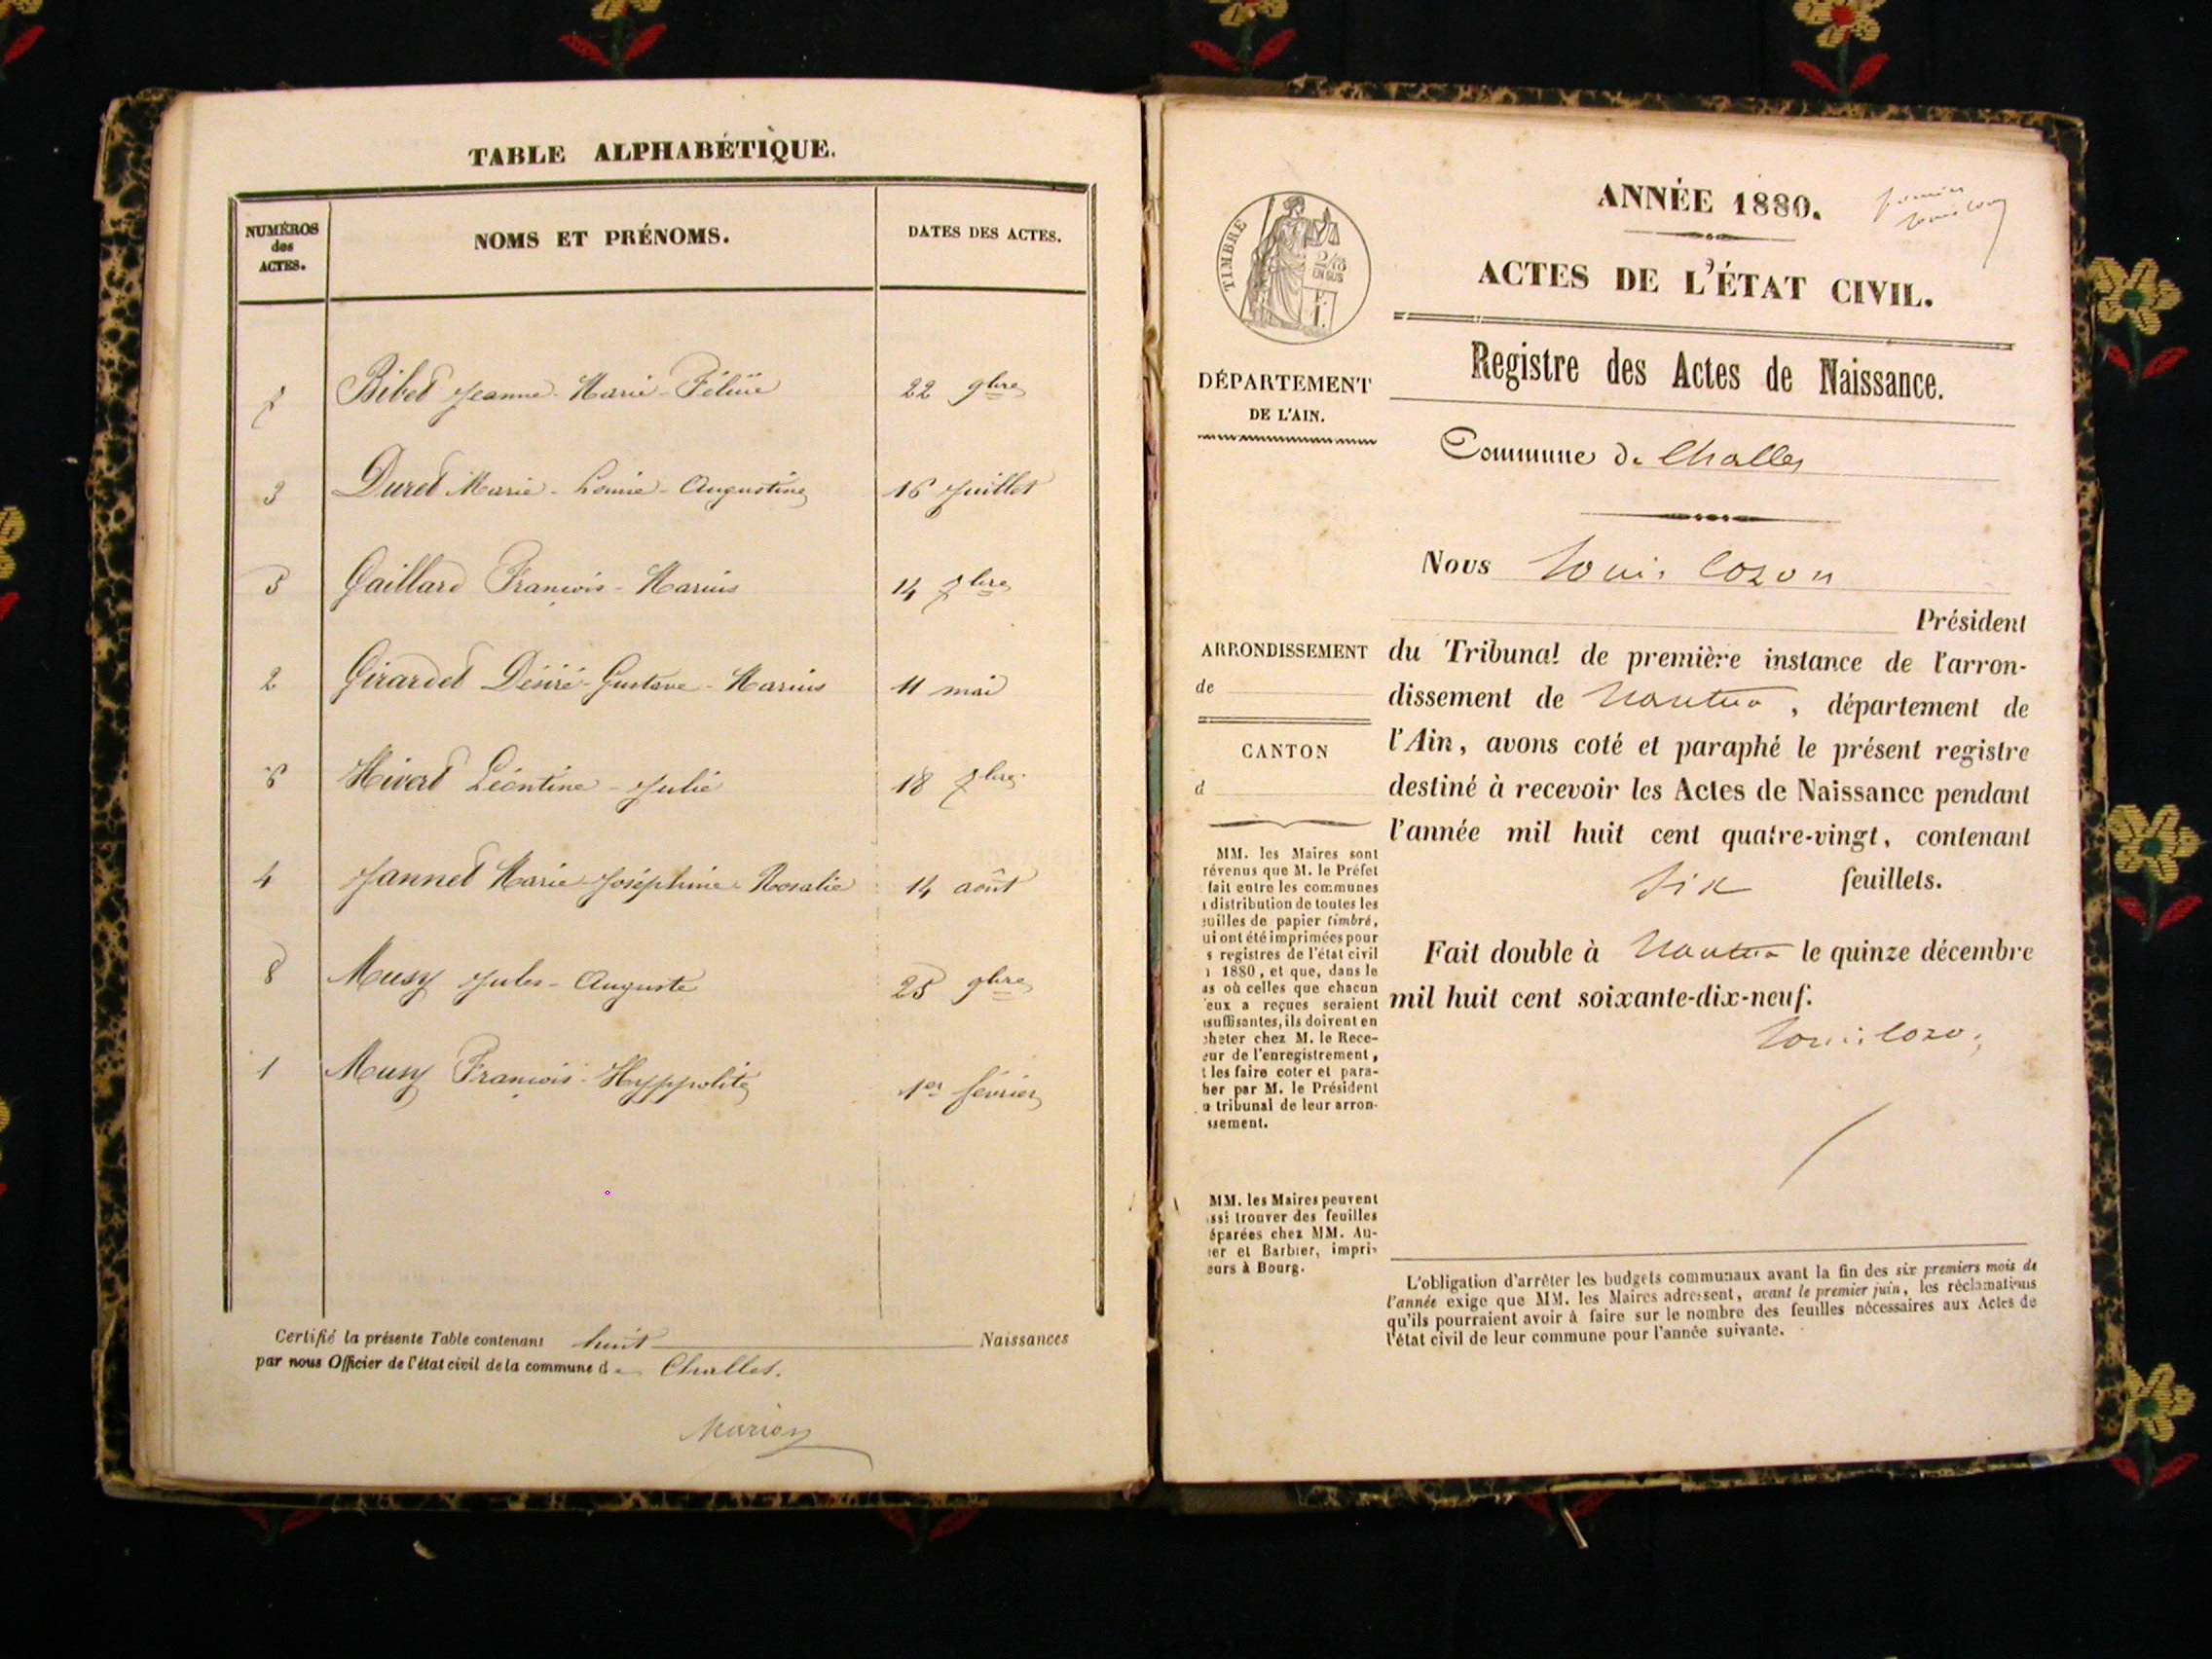 TABLE ALPHABÉTIQUE.
NUMÉROS
des
ACTES.
NOMS ET PRÉNOMS.
DATES DES ACTES.
7 Bibet Jeanne-Marie- 22 9bre
3 Duret Marie-Louise-Augustine 16 Juillet
5 Gaillard François-Marius 14 7bre
2 Girardet Désiré-Gustave-Marius 11 mai
6 Hivert Léontine-Julie 18 7bre
4 Jannet Marie-Joséphine-Rosalie 14 août
8 Musy Jules-Auguste 25 9bre
1 Musy François-Hyppolite 1er février
Certifié la présente Table contenant huit Naissances
par nous Officier de l'état civil de la commune de Challes.
Marion
TIMBRE
2/10
EN SUS
ANNÉE 1880.
ACTES DE L'ÉTAT CIVIL.
Registre des Actes de Naissance.
DÉPARTEMENT
DE L'AIN.
Commune de Challes
Nous Louis Cozon
Président
ARRONDISSEMENT
de
CANTON
d
du Tribunal de première instance de l'arron-
dissement de Nantua, département de
l'Ain, avons coté et paraphé le présent registre
destiné à recevoir les Actes de Naissance pendant
l'année mil huit cent quatre-vingt, contenant
six feuillets.
Fait double à Nantua le quinze décembre
mil huit cent soixante-dix-neuf.
Louis Cozon
MM. les Maires sont
révenus que M. le Préfet
fait entre les communes
distribution de toutes les
euilles de papier timbré,
ui ont été imprimées pour
s registres de l'état civil
1880, et que, dans le
as où celles que chacun
'eux a reçues seraient
nsuffisantes, ils doivent en
cheter chez M. le Rece-
eur de l'enregistrement,
t les faire coter et para-
her par M. le Président
u tribunal de leur arron-
ssement.
MM. les Maires peuvent
ssi trouver des feuilles
éparées chez MM. Au-
ier et Barbier, impri-
eurs à Bourg.
L'obligation d'arrêter les budgets communaux avant la fin des six premiers mois de
l'année exige que MM. les Maires adressent, avant le premier juin, les réclamations
qu'ils pourraient avoir à faire sur le nombre des feuilles nécessaires aux Actes de
l'état civil de leur commune pour l'année suivante.